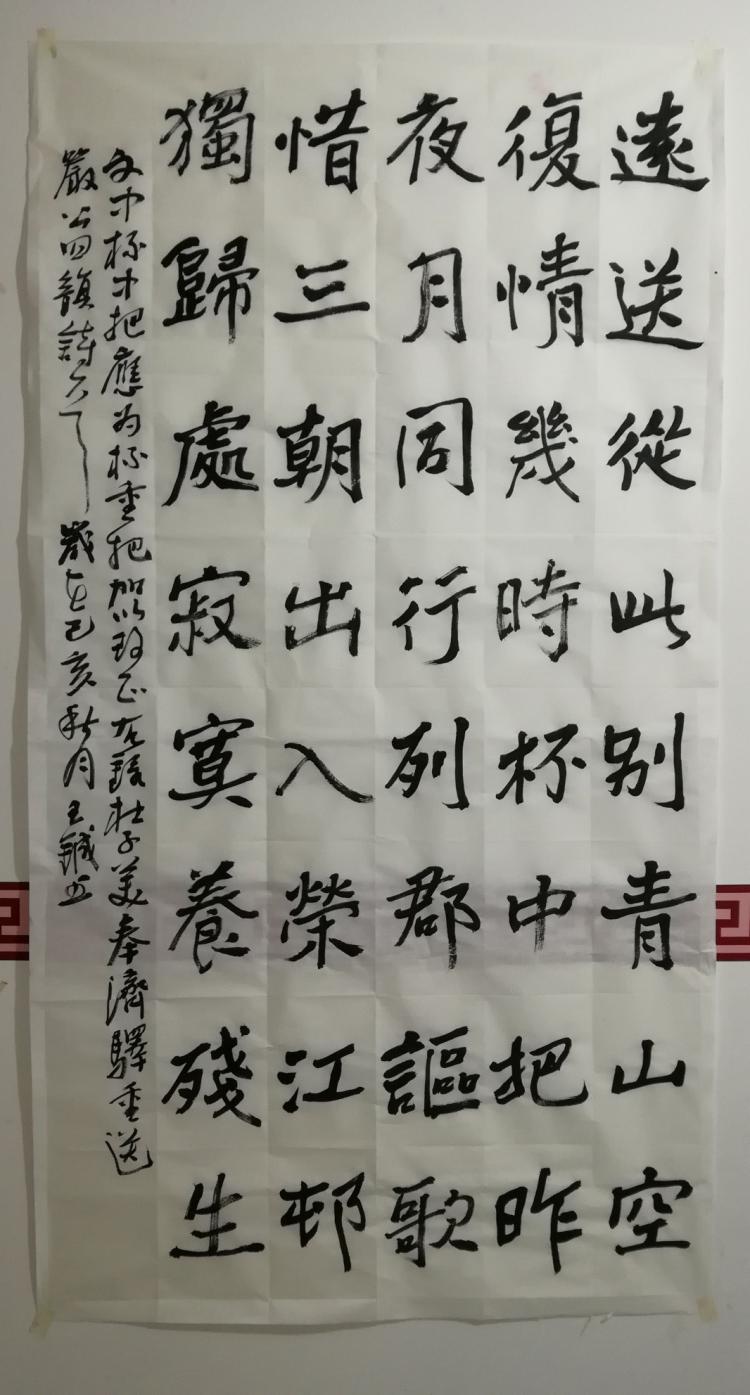 遠送從此别青山空
復情幾時杯中把昨
夜月同行列郡謳歌
惜三朝出入榮江邨
獨歸處寂寞養殘生
文中杯中把應为杯重把加以改正右錄杜子美奉濟驛重送
嚴公四韻詩一首歲在己亥秋月王鋮书